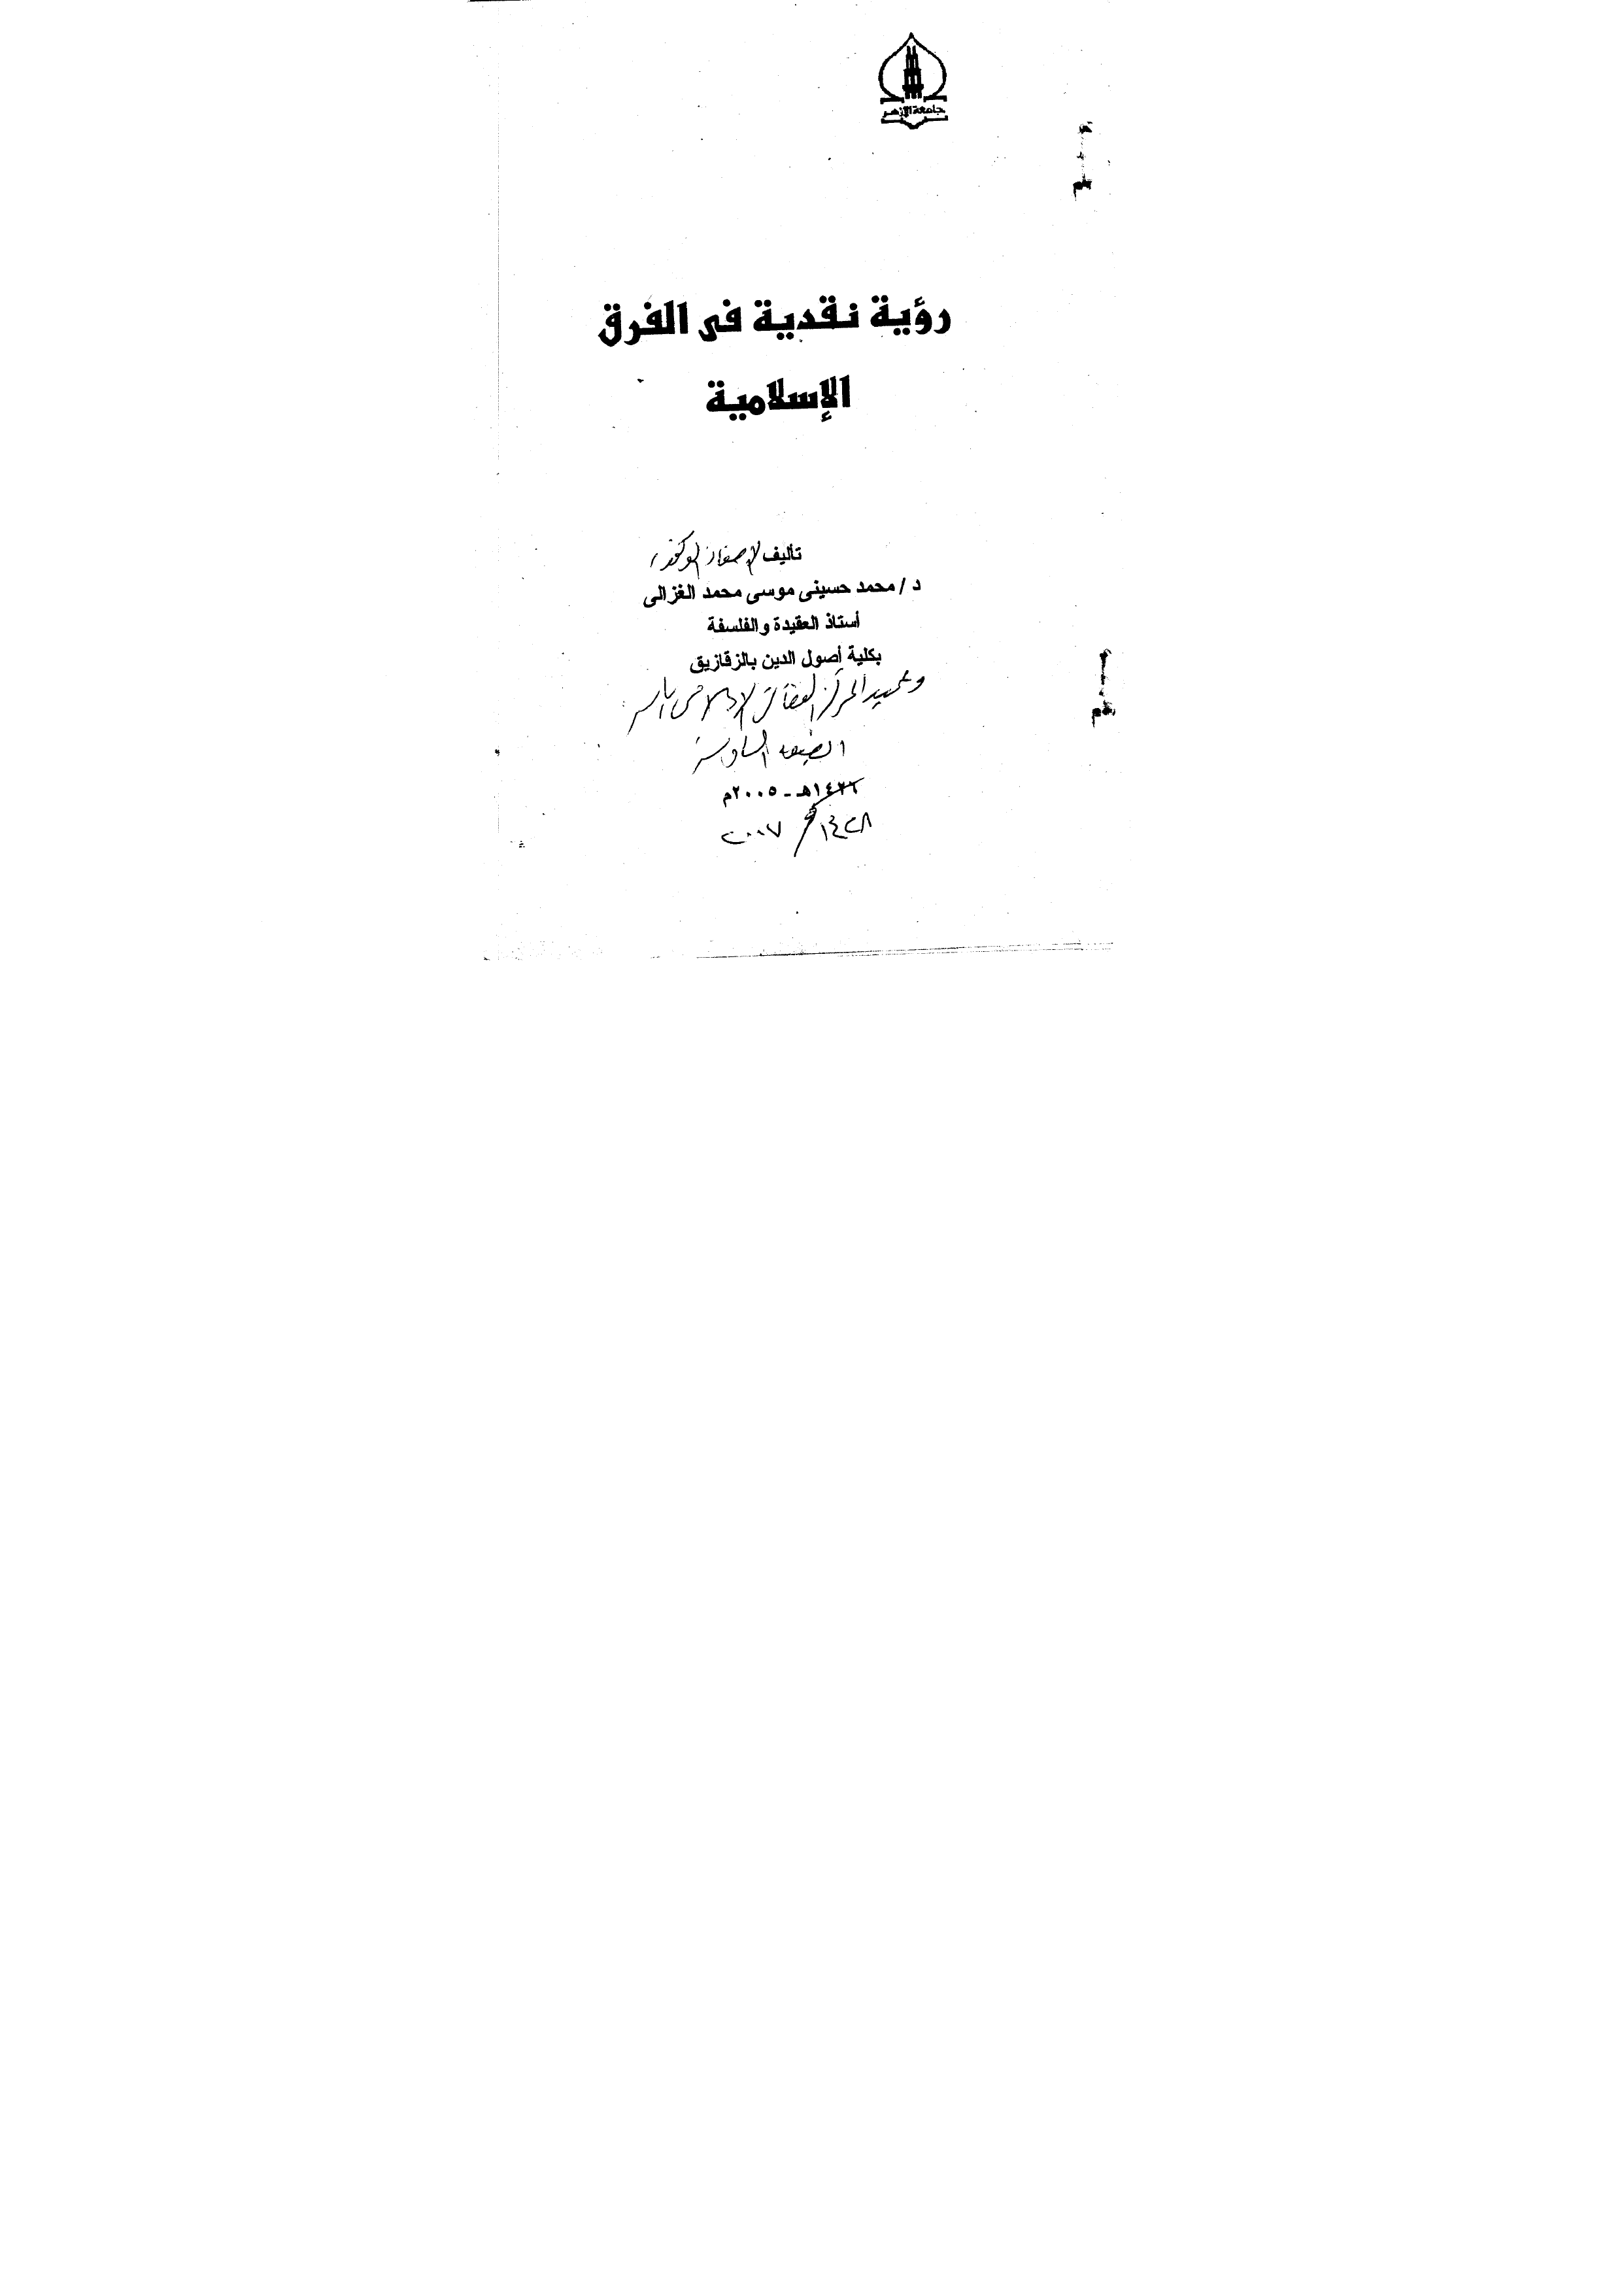 جامعة الأزهر
رؤية نقدية فى الفرق
الإسلامية
تأليف الأستاذ الدكتور
د / محمد حسينى موسى محمد الغزالى
أستاذ العقيدة والفلسفة
بكلية أصول الدين بالزقازيق
وعميد المركز الثقافى الإسلامى
الطبعة السادسة
١٤٢٦هـ - ٢٠٠٥م
١٤٢٨هـ ٢٠٠٧